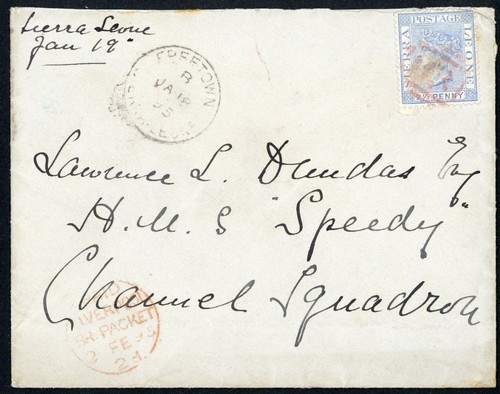 Sierra Leone
Jan 19"
POSTAGE
SIERRA
LEONE
PENNY
FREETOWN
B
JA 18
95
SIERRA LEONE
Lawrence L. Dundas Esq
H.M.S "Speedy"
Channel Squadron
LIVERPOOL
BR. PACKET
2 FE 95
2d.